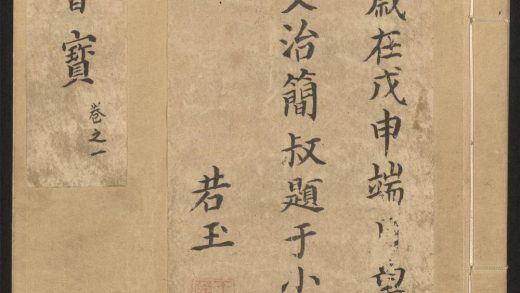 歲在戊申端月望
治簡叔題于小
若玉
寶
卷之一